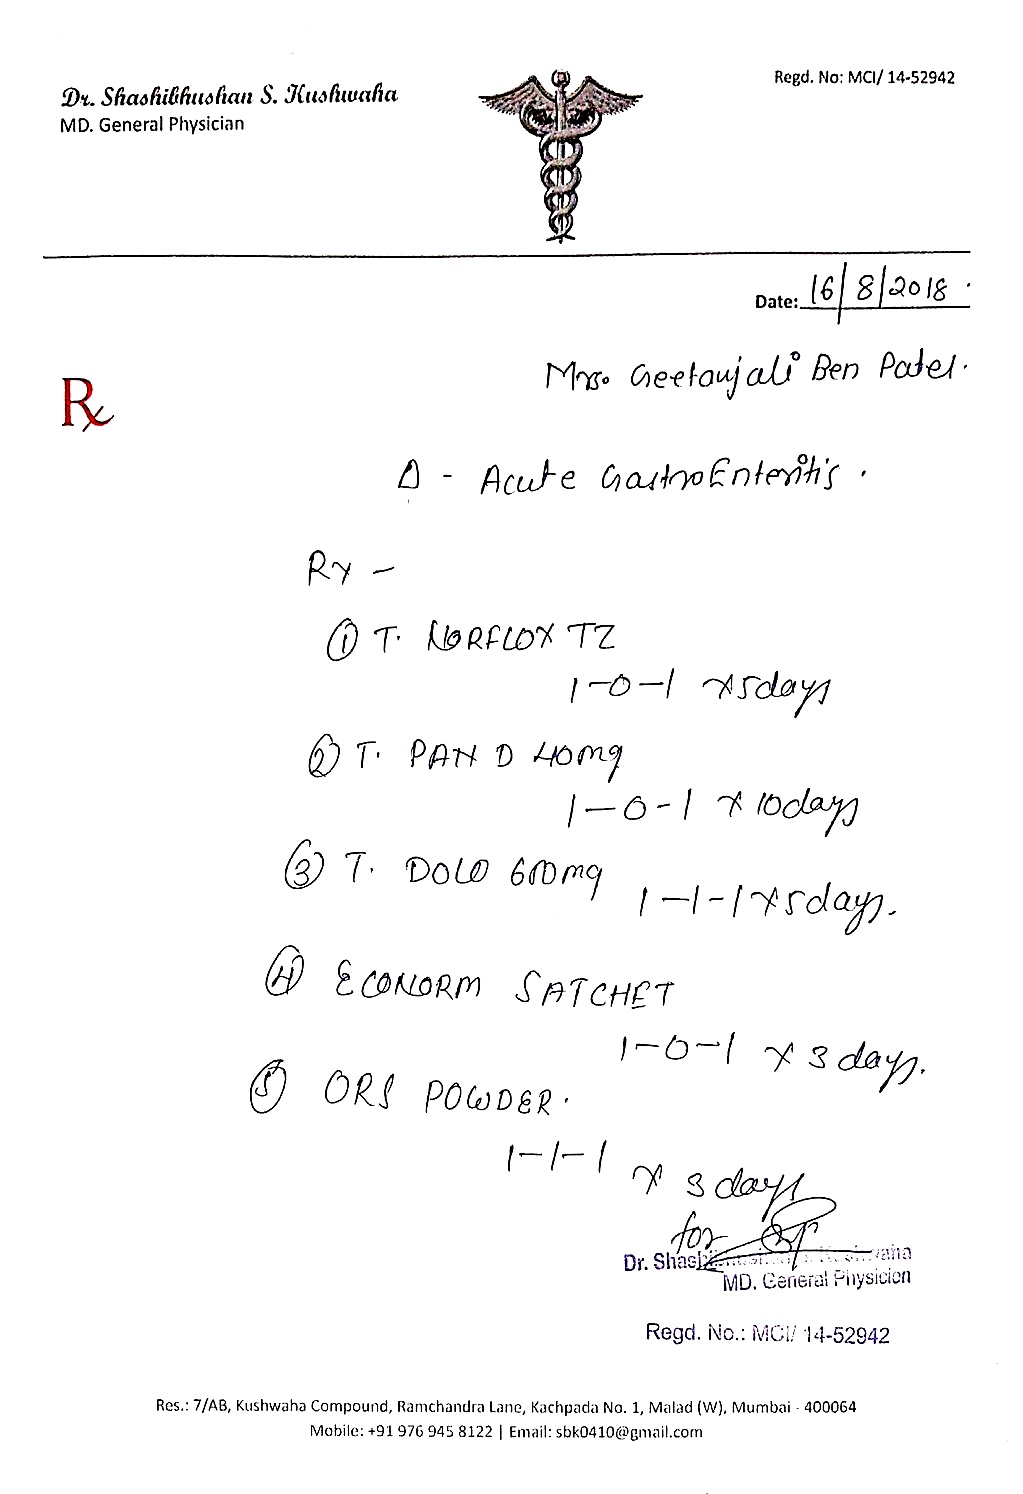 Dr. Shashibhushan S. Kushwaha
MD. General Physician
Regd. No: MCI/ 14-52942
Date: 16/8/2018.
Mrs. Geetanjali Ben Patel.
Rx
Δ - Acute GastroEnteritis.
Rx -
① T. NORFLOX TZ
1-0-1 x 5days
② T. PAN D 40mg
1-0-1 x 10days
③ T. DOLO 650mg
1-1-1 x 5days.
④ ECONORM SATCHET
1-0-1 x 3 days.
⑤ ORS POWDER.
1-1-1 x 3 days
for
Dr. Shashi
MD. General Physician
Regd. No.: MCI/ 14-52942
Res.: 7/AB, Kushwaha Compound, Ramchandra Lane, Kachpada No. 1, Malad (W), Mumbai - 400064
Mobile: +91 976 945 8122 | Email: sbk0410@gmail.com